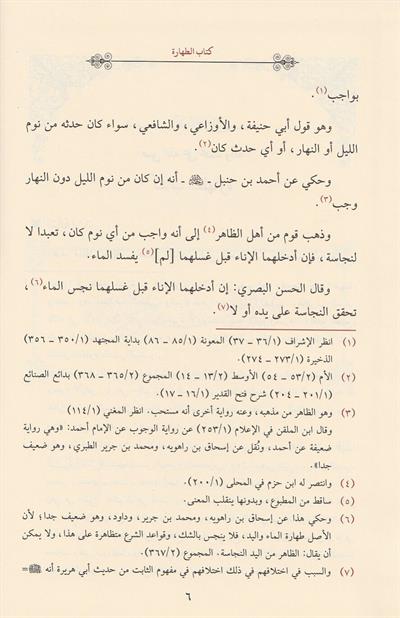 كتاب الطهارة
بواجب(١).
وهو قول أبي حنيفة، والأوزاعي، والشافعي، سواء كان حدثه من نوم
الليل أو النهار، أو أي حدث كان(٢).
وحكي عن أحمد بن حنبل - رضي الله عنه - أنه إن كان من نوم الليل دون النهار
وجب(٣).
وذهب قوم من أهل الظاهر(٤) إلى أنه واجب من أي نوم كان، تعبدا لا
لنجاسة، فإن أدخلهما الإناء قبل غسلهما [لم](٥) يفسد الماء.
وقال الحسن البصري: إن أدخلهما الإناء قبل غسلهما نجس الماء(٦)،
تحقق النجاسة على يده أو لا(٧).
(١) انظر الإشراف (٣٦/١ - ٣٧) المعونة (٨٥/١ - ٨٦) بداية المجتهد (٣٥٠/١ - ٣٥٦)
الذخيرة (٢٧٣/١ - ٢٧٤).
(٢) الأم (٥٣/٢ - ٥٤) الأوسط (١٣/٢ - ١٤) المجموع (٣٦٥/٢ - ٣٦٨) بدائع الصنائع
(٢٠١/١ - ٢٠٤) شرح فتح القدير (١٦/١ - ١٧).
(٣) وهو الظاهر من مذهبه، وعنه رواية أخرى أنه مستحب. انظر المغني (١١٤/١)
وقال ابن الملقن في الإعلام (٢٥٣/١) عن رواية الوجوب عن الإمام أحمد: «وهي رواية
ضعيفة عن أحمد، ونُقل عن إسحاق بن راهويه، ومحمد بن جرير الطبري، وهو ضعيف
جدا».
(٤) وانتصر له ابن حزم في المحلى (٢٠٠/١).
(٥) ساقط من المطبوع، وبدونها ينقلب المعنى.
(٦) وحكي هذا عن إسحاق بن راهويه، ومحمد بن جرير، وداود، وهو ضعيف جدا؛ لأن
الأصل طهارة الماء واليد، فلا ينجس بالشك، وقواعد الشرع متظاهرة على هذا، ولا يمكن
أن يقال: الظاهر من اليد النجاسة. المجموع (٣٦٧/٢).
(٧) والسبب في اختلافهم في ذلك اختلافهم في مفهوم الثابت من حديث أبي هريرة أنه ﷺ=
٦